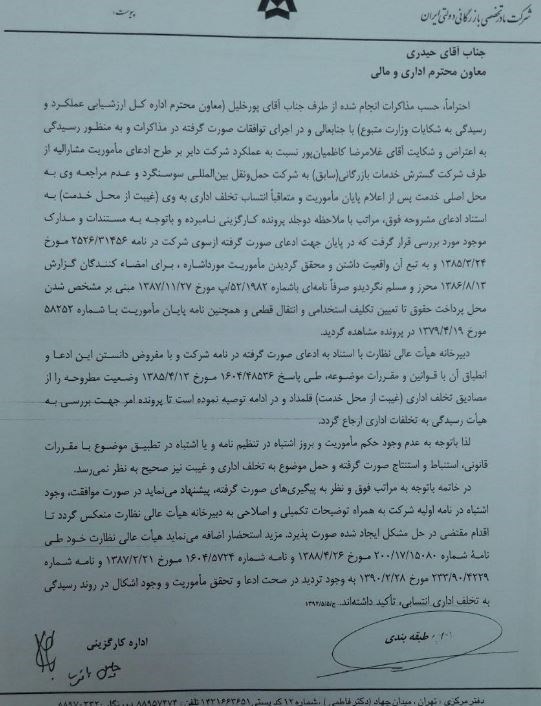 شرکت مادر تخصصی بازرگانی دولتی ایران
پیوست:
جناب آقای حیدری
معاون محترم اداری و مالی
احتراماً، حسب مذاکرات انجام شده از طرف جناب آقای پورخلیل (معاون محترم اداره کل ارزشیابی عملکرد و
رسیدگی به شکایات وزارت متبوع) با جنابعالی و در اجرای توافقات صورت گرفته در مذاکرات و به منظور رسیدگی
به اعتراض و شکایت آقای غلامرضا کاظمیان‌پور نسبت به عملکرد شرکت دایر بر طرح ادعای مأموریت مشارالیه از
طرف شرکت گسترش خدمات بازرگانی(سابق) به شرکت حمل‌ونقل بین‌المللی سوسنگرد و عدم مراجعه وی به
محل اصلی خدمت پس از اعلام پایان مأموریت و متعاقباً انتساب تخلف اداری به وی (غیبت از محل خدمت) به
استناد ادعای مشروحه فوق، مراتب با ملاحظه دوجلد پرونده کارگزینی نامبرده و باتوجه به مستندات و مدارک
موجود مورد بررسی قرار گرفت که در پایان جهت ادعای صورت گرفته ازسوی شرکت در نامه ۲۵۲۶/۳۱۴۵۶ مورخ
۱۳۸۵/۳/۲۴ و به تبع آن واقعیت داشتن و محقق گردیدن مأموریت مورداشاره ، برای امضاء کنندگان گزارش
۱۳۸۶/۸/۱۳ محرز و مسلم نگردیدو صرفاً نامه‌ای باشماره ۵۲/۱۹۸۲/پ مورخ ۱۳۸۷/۱۱/۲۷ مبنی بر مشخص شدن
محل پرداخت حقوق تا تعیین تکلیف استخدامی و انتقال قطعی و همچنین نامه پایان مأموریت با شماره ۵۸۲۵۲
مورخ ۱۳۷۹/۴/۱۹ در پرونده مشاهده گردید.
دبیرخانه هیأت عالی نظارت با استناد به ادعای صورت گرفته در نامه شرکت و با مفروض دانستن این ادعا و
انطباق آن با قوانین و مقررات موضوعه، طی پاسخ ۱۶۰۴/۴۸۵۳۶ مورخ ۱۳۸۵/۴/۱۳ وضعیت مطروحه را از
مصادیق تخلف اداری (غیبت از محل خدمت) قلمداد و در ادامه توصیه نموده است تا پرونده امر جهت بررسی به
هیأت رسیدگی به تخلفات اداری ارجاع گردد.
لذا باتوجه به عدم وجود حکم مأموریت و بروز اشتباه در تنظیم نامه و یا اشتباه در تطبیق موضوع با مقررات
قانونی، استنباط و استنتاج صورت گرفته و حمل موضوع به تخلف اداری و غیبت نیز صحیح به نظر نمی‌رسد.
در خاتمه باتوجه به مراتب فوق و نظر به پیگیری‌های صورت گرفته، پیشنهاد می‌نماید در صورت موافقت، وجود
اشتباه در نامه اولیه شرکت به همراه توضیحات تکمیلی و اصلاحی به دبیرخانه هیأت عالی نظارت منعکس گردد تا
اقدام مقتضی در حل مشکل ایجاد شده صورت پذیرد. مزید استحضار اضافه می‌نماید هیأت عالی نظارت خود طی
نامهٔ شماره ۲۰۰/۱۷/۱۵۰۸۰ مورخ ۱۳۸۸/۴/۲۶ و نامه شماره ۱۶۰۴/۵۷۲۴ مورخ ۱۳۸۷/۲/۲۱ و نامه شماره
۲۳۳/۹۰/۴۲۲۹ مورخ ۱۳۹۰/۲/۲۸ به وجود تردید در صحت ادعا و تحقق مأموریت و وجود اشکال در روند رسیدگی
به تخلف اداری انتسابی، تأکید داشته‌اند. ج/۱۳۹۲/۵/۵
اداره کارگزینی
طبقه بندی
دفتر مرکزی : تهران ، میدان جهاد (دکتر فاطمی) ، شماره ۱۲ کد پستی ۱۴۳۱۶۶۳۶۵۱ تلفن : ۸۸۹۵۷۴۷۴